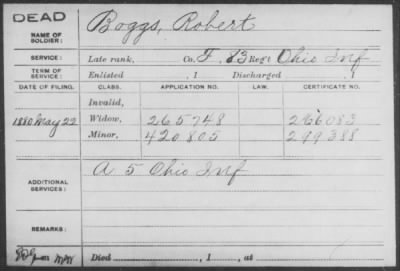 DEAD
NAME OF SOLDIER: Boggs, Robert
SERVICE: Late rank, Co. F, 83 Reg't Ohio Inf
TERM OF SERVICE: Enlisted , 1 Discharged , 1
DATE OF FILING. CLASS. APPLICATION NO. LAW. CERTIFICATE NO.
Invalid,
1880 May 22 Widow, 265748 266083
Minor, 420805 299388
ADDITIONAL SERVICES: A 5 Ohio Inf
REMARKS:
Died , 1 , at